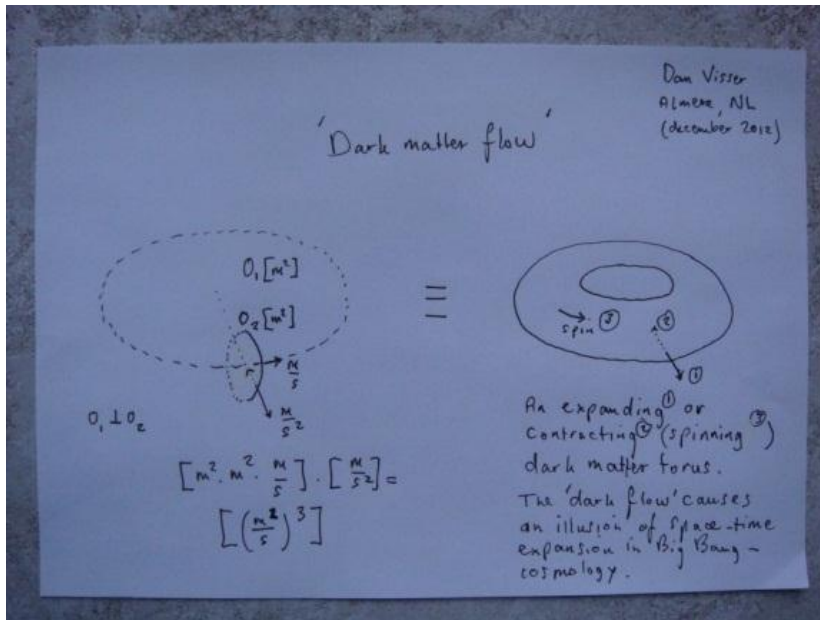 Dan Visser
Almere, NL
(december 2012)
'Dark matter flow'
O₁[m²]
O₂[m²]
r
m/s
m/s²
O₁ ⊥ O₂
[m². m². m/s] . [m/s²] =
[(m²/s)³]
≡
spin ③
②
①
An expanding① or
contracting② (spinning③)
dark matter torus.
The 'dark flow' causes
an illusion of space-time
expansion in Big Bang-
cosmology.